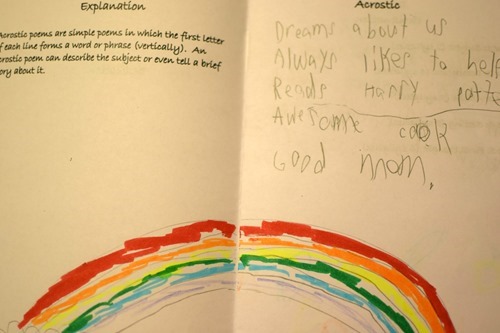 Explanation
Acrostic poems are simple poems in which the first letter
of each line forms a word or phrase (vertically). An
acrostic poem can describe the subject or even tell a brief
story about it.
Acrostic
Dreams about us
Always likes to help
Reads Harry potter
Awesome cook
Good mom.